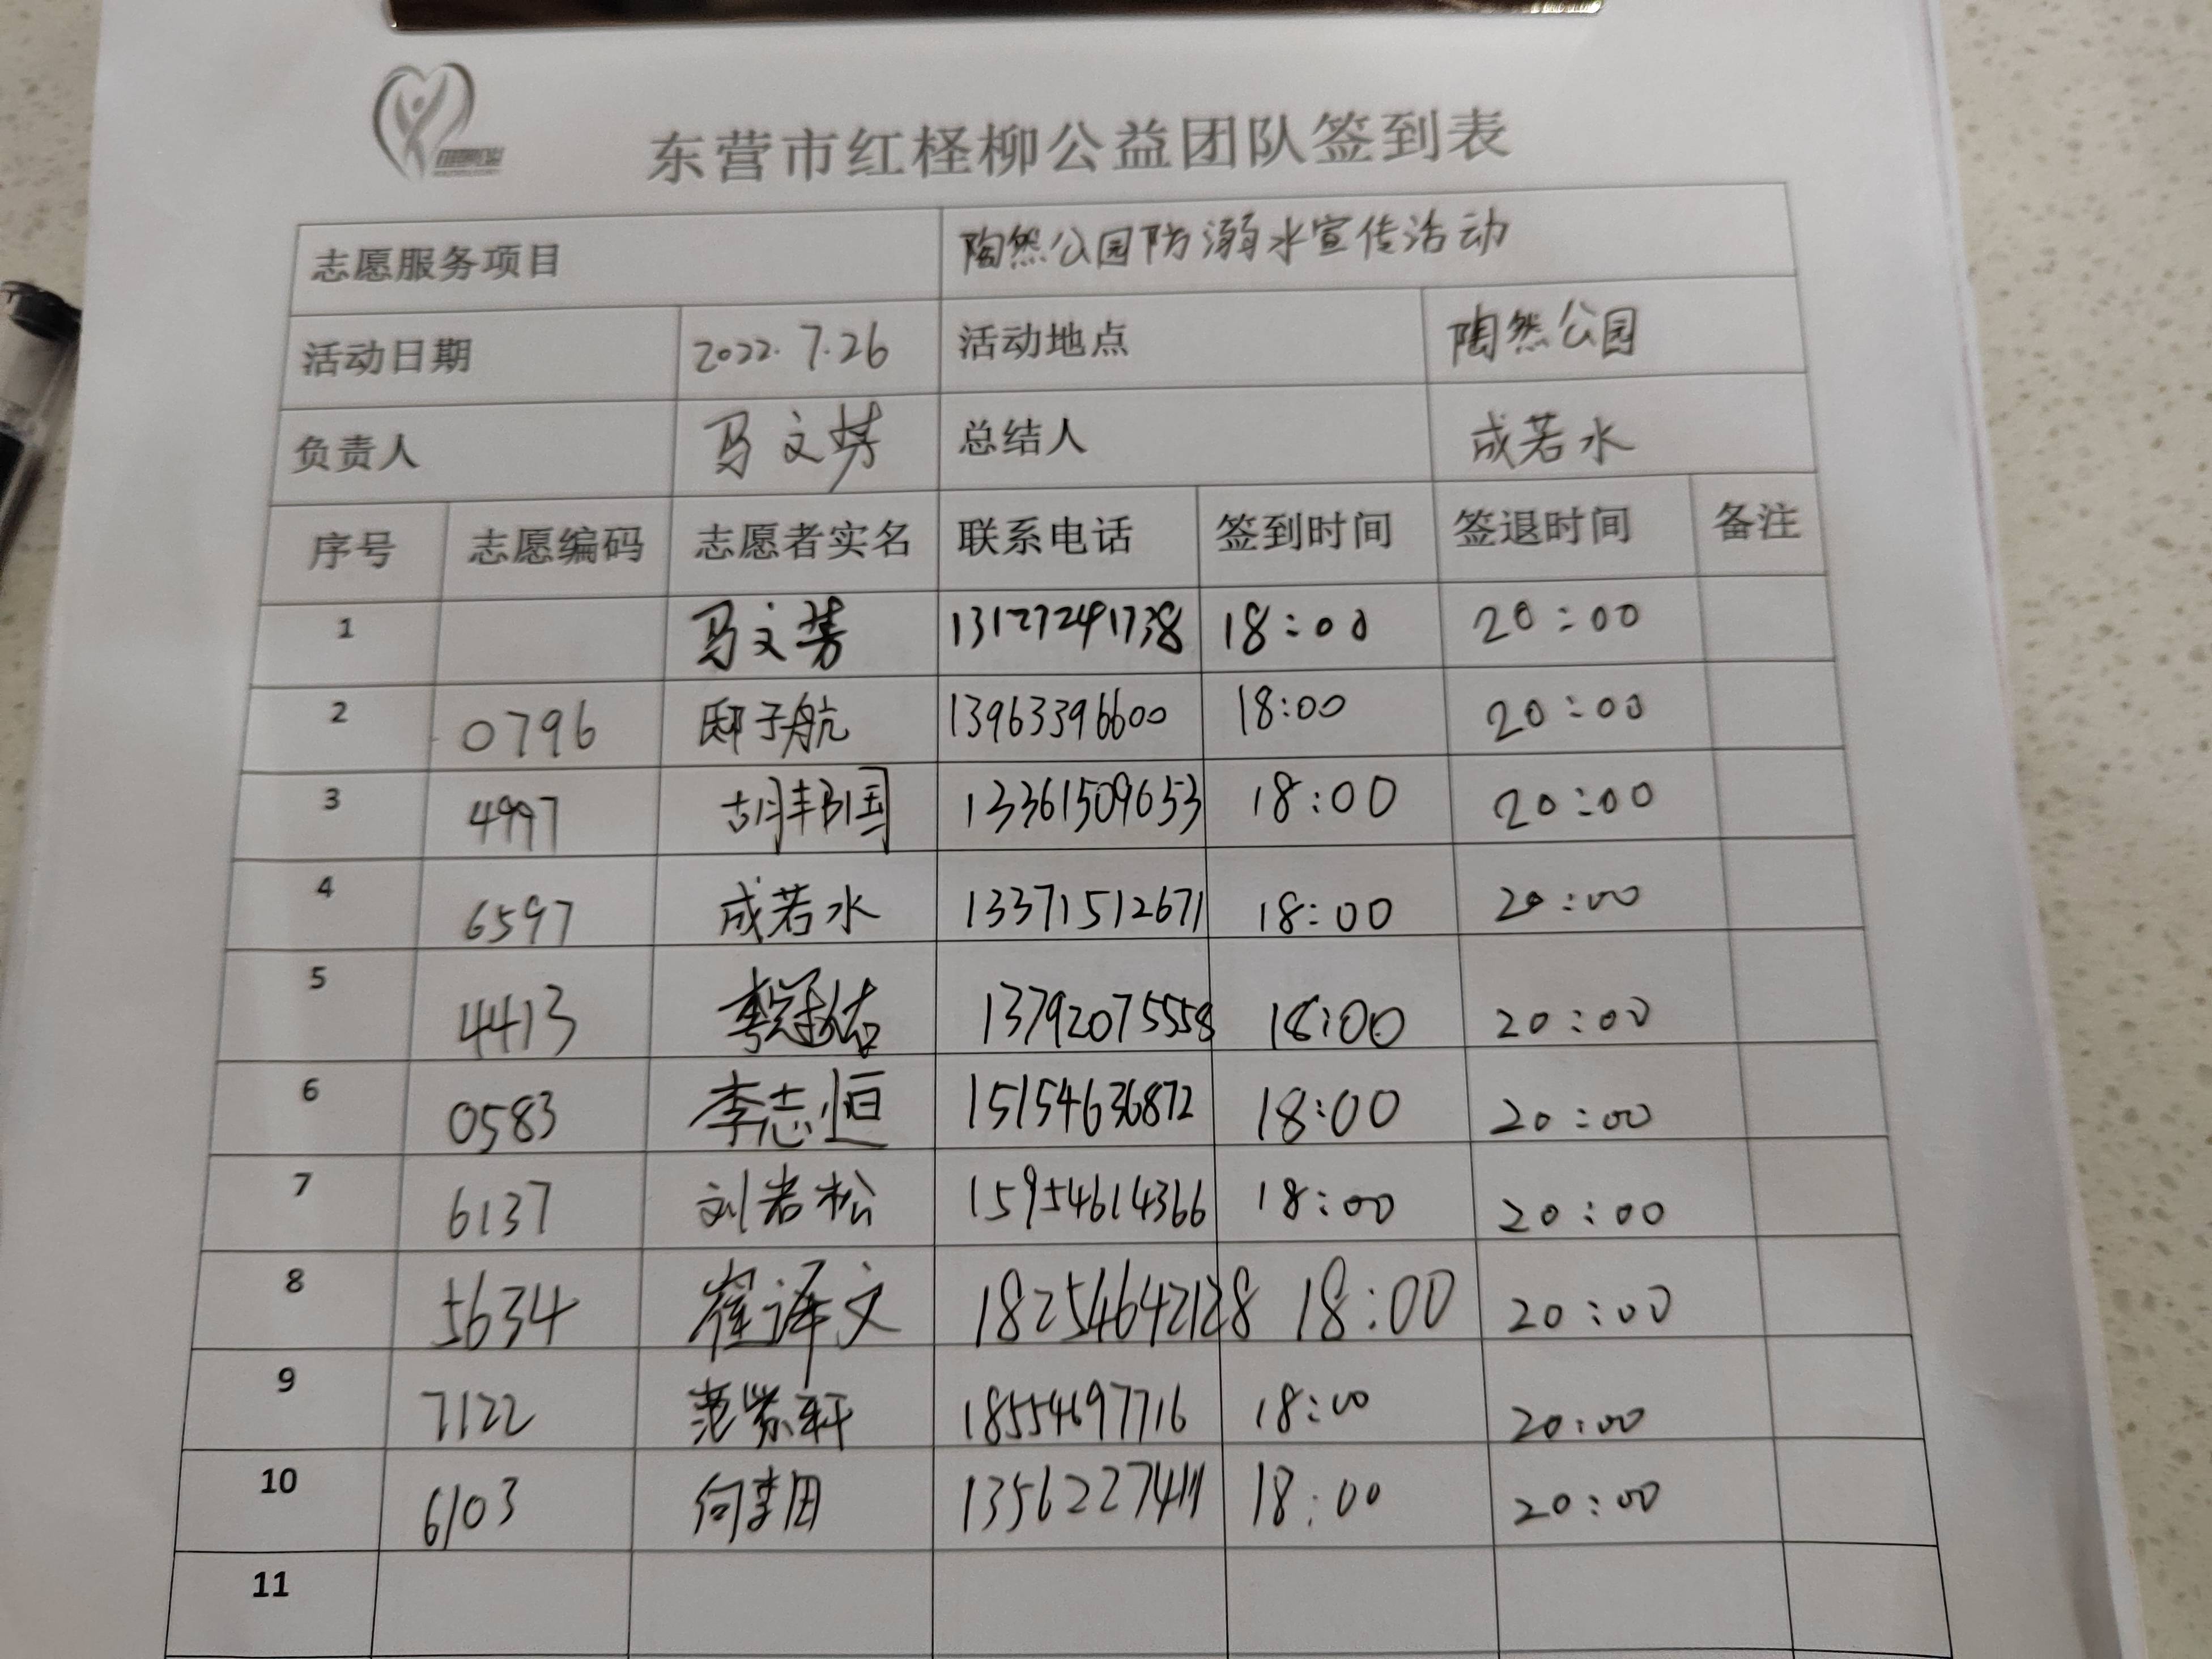 东营市红柽柳公益团队签到表
志愿服务项目 陶然公园防溺水宣传活动
活动日期 2022.7.26 活动地点 陶然公园
负责人 马文芳 总结人 成若水
序号 志愿编码 志愿者实名 联系电话 签到时间 签退时间 备注
1 马文芳 13127291738 18:00 20:00
2 0796 邸子航 13963396600 18:00 20:00
3 4997 胡邦国 13361509653 18:00 20:00
4 6597 成若水 13371512671 18:00 20:00
5 4413 李冠佑 13792075558 18:00 20:00
6 0583 李志恒 15154636872 18:00 20:00
7 6137 刘岩松 15954614366 18:00 20:00
8 5634 崔译文 18254642128 18:00 20:00
9 7122 范紫轩 18554697716 18:00 20:00
10 6103 18:00 20:00
11